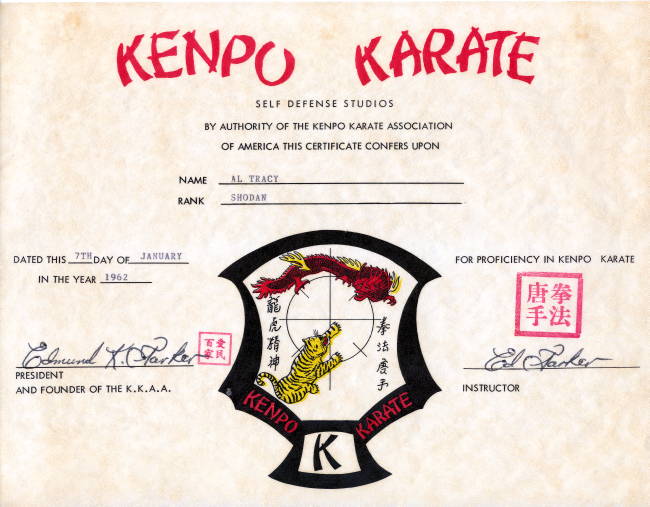 KENPO KARATE
SELF DEFENSE STUDIOS
BY AUTHORITY OF THE KENPO KARATE ASSOCIATION
OF AMERICA THIS CERTIFICATE CONFERS UPON
NAME AL TRACY
RANK SHODAN
DATED THIS 7TH DAY OF JANUARY
IN THE YEAR 1962
FOR PROFICIENCY IN KENPO KARATE
拳法
唐手
龍虎精神
拳法唐手
Edmund K. Parker
愛民
百家
PRESIDENT
AND FOUNDER OF THE K.K.A.A.
Ed Parker
INSTRUCTOR
KENPO KARATE
K